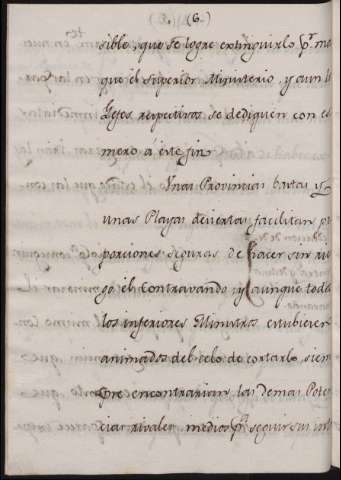 (6.)
sible, que se logre extinguirlo p.r mas
que el Superior Ministerio, y aun los
Gefes respectivos se dediquen con es
mero à este fin.
Unas Provincias bastas y
unas Playas deciertas facilitan pro
porciones seguras de hacer sin ries
go el Contravando y aunque todos
los inferiores Ministros estubieren
animados del celo de cortarlo siem
pre encontrarian las demas Poten
cias rivales medios p.a seguir sus